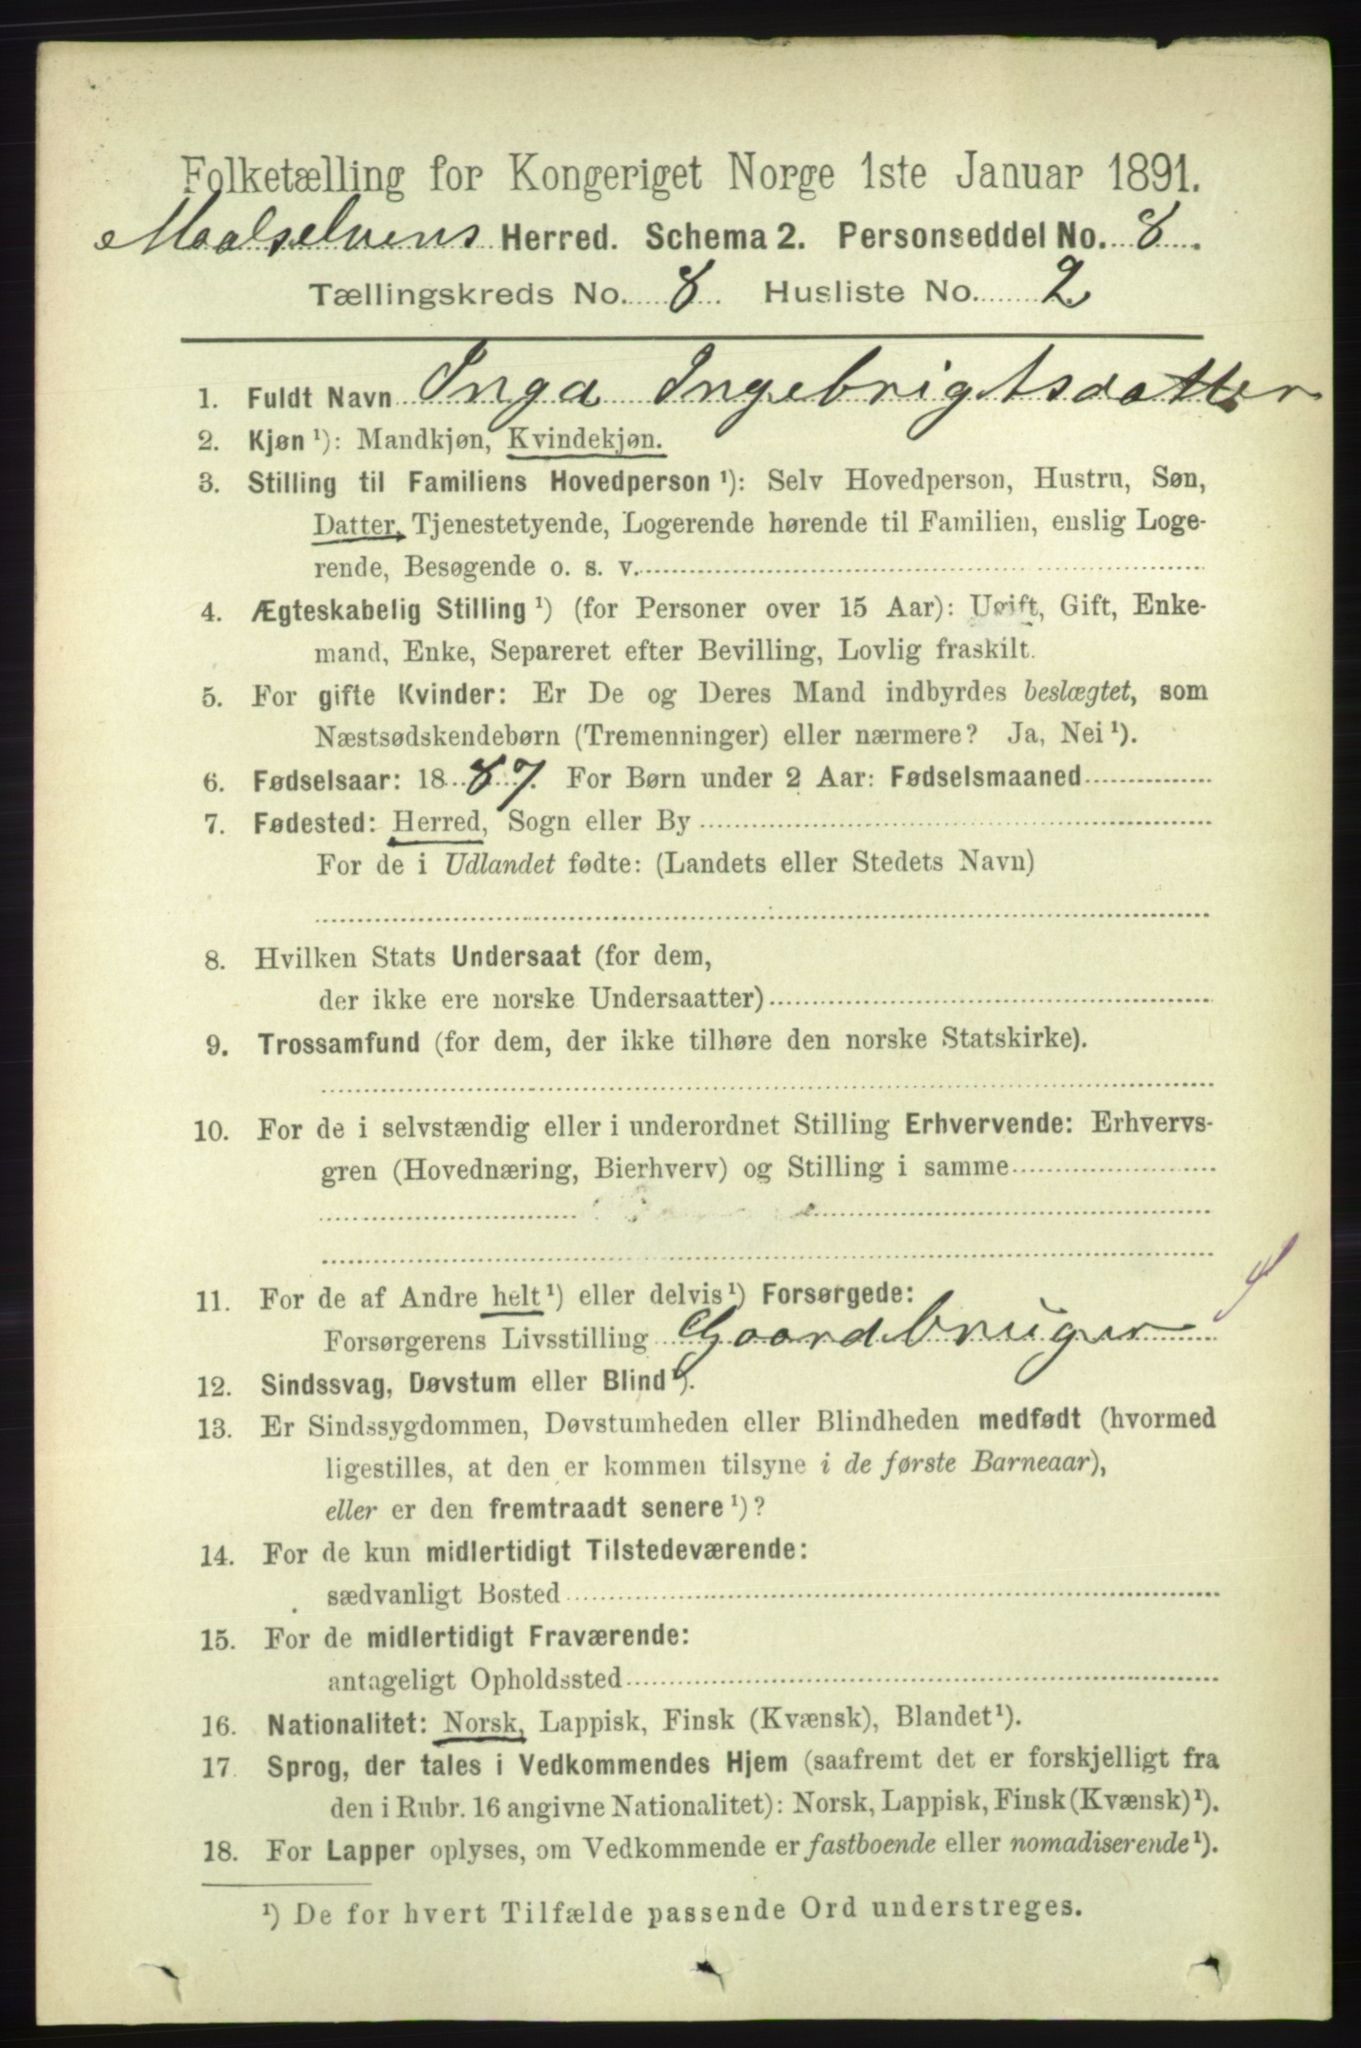 Folketælling for Kongeriget Norge 1ste Januar 1891.
Maalselvens Herred. Schema 2. Personseddel No. 8.
Tællingskreds No. 8 Husliste No. 2
1. Fuldt Navn Inga Ingebrigtsdatter
2. Kjøn ¹): Mandkjøn, Kvindekjøn.
3. Stilling til Familiens Hovedperson ¹): Selv Hovedperson, Hustru, Søn,
Datter, Tjenestetyende, Logerende hørende til Familien, enslig Loge-
rende, Besøgende o. s. v.
4. Ægteskabelig Stilling ¹) (for Personer over 15 Aar): Ugift, Gift, Enke-
mand, Enke, Separeret efter Bevilling, Lovlig fraskilt.
5. For gifte Kvinder: Er De og Deres Mand indbyrdes beslægtet, som
Næstsødskendebørn (Tremenninger) eller nærmere? Ja, Nei ¹).
6. Fødselsaar: 1887. For Børn under 2 Aar: Fødselsmaaned
7. Fødested: Herred, Sogn eller By
For de i Udlandet fødte: (Landets eller Stedets Navn)
8. Hvilken Stats Undersaat (for dem,
der ikke ere norske Undersaatter)
9. Trossamfund (for dem, der ikke tilhøre den norske Statskirke).
10. For de i selvstændig eller i underordnet Stilling Erhvervende: Erhvervs-
gren (Hovednæring, Bierhverv) og Stilling i samme
11. For de af Andre helt ¹) eller delvis ¹) Forsørgede:
Forsørgerens Livsstilling Gaardbruger
12. Sindssvag, Døvstum eller Blind ¹).
13. Er Sindssygdommen, Døvstumheden eller Blindheden medfødt (hvormed
ligestilles, at den er kommen tilsyne i de første Barneaar),
eller er den fremtraadt senere ¹)?
14. For de kun midlertidigt Tilstedeværende:
sædvanligt Bosted
15. For de midlertidigt Fraværende:
antageligt Opholdssted
16. Nationalitet: Norsk, Lappisk, Finsk (Kvænsk), Blandet ¹).
17 Sprog, der tales i Vedkommendes Hjem (saafremt det er forskjelligt fra
den i Rubr. 16 angivne Nationalitet): Norsk, Lappisk, Finsk (Kvænsk) ¹).
18. For Lapper oplyses, om Vedkommende er fastboende eller nomadiserende ¹).
¹) De for hvert Tilfælde passende Ord understreges.